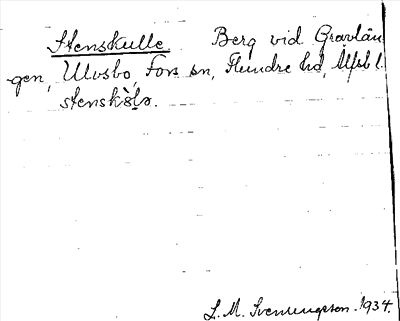 Stenskulle. Berg vid Gravlån
gen, Ulvsbo, Fors sn, Flundre hd, Älfsb l.
stensköla.
L. M. Svenungsson. 1934.